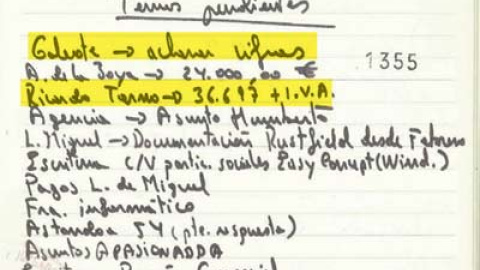 Temas pendientes
Galeote → aclarar cifras
A. de la Joya → 24.000,00 €
.1355
Ricardo Tormo → 36.697 + I.V.A.
Agencia → Asunto Humberto
L. Miguel → Documentación Rustfield desde Febrero
Escritura C/V partic. sociales Easy Concept (Wind.)
Pagos L. de Miguel
Fra. informático
Astondoa 54 (pte. respuesta)
Asuntos APASIONADDA